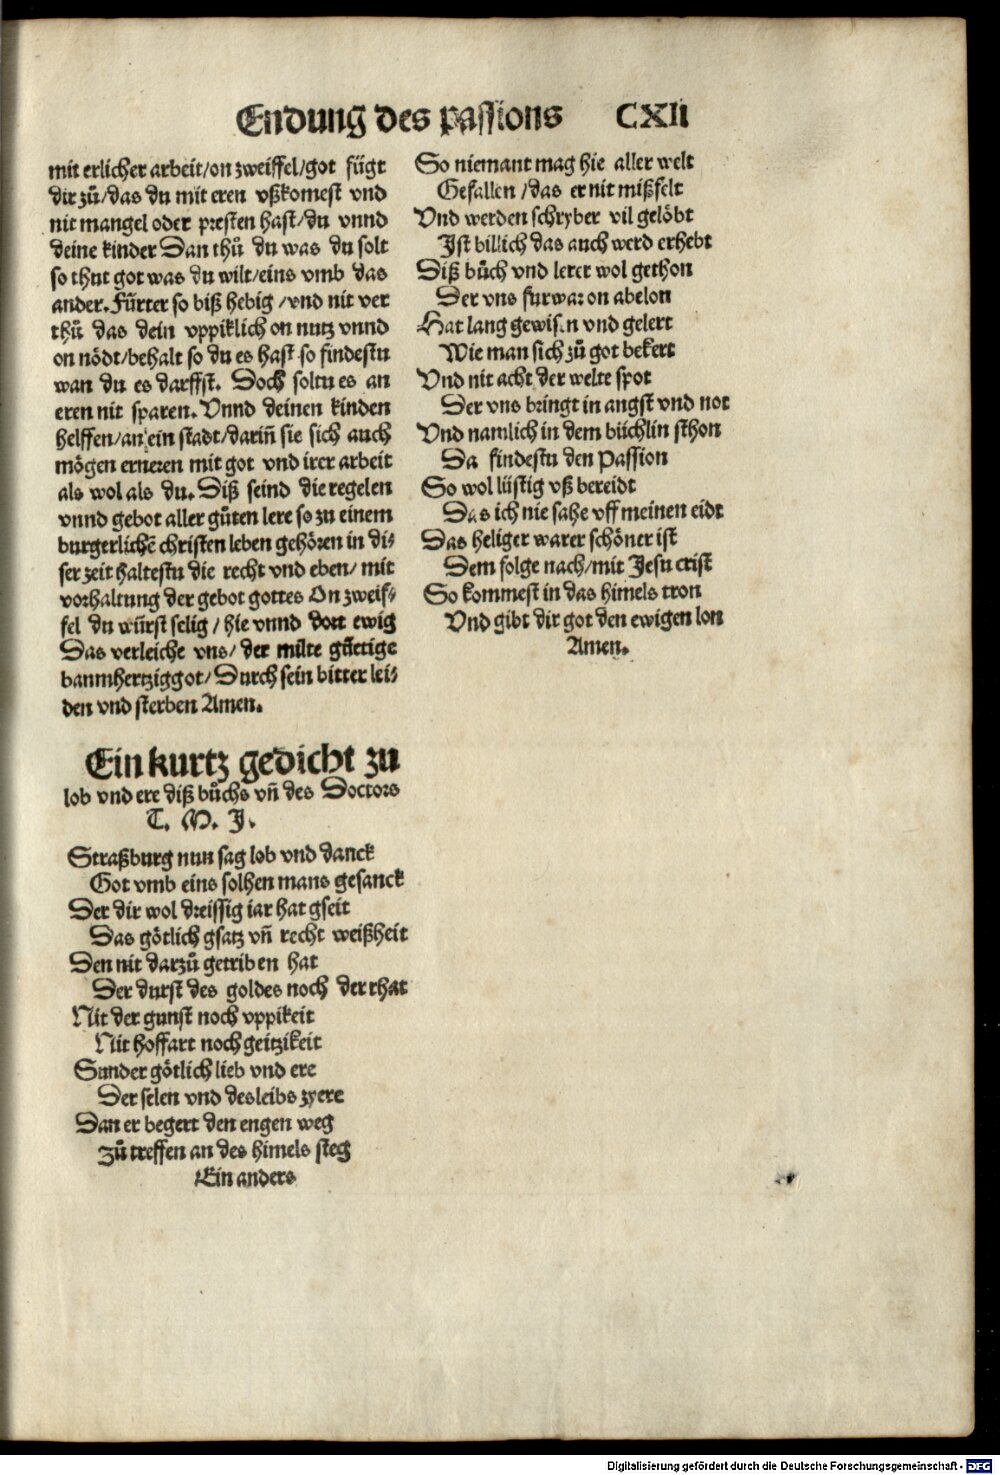 Endung des passions CXII
mit erlicher arbeit/on zweiffel/got fügt
dir zů/das du mit eren vßkomest vnd
nit mangel oder presten hast/du vnnd
deine kinder Dan thů du was du solt
so thut got was du wilt/eins vmb das
ander. Fürter so biß hebig/vnd nit ver
thů das dein vppiklich on nutz vnnd
on nödt/behalt so du es hast so findestu
wan du es darffst. Doch soltu es an
eren nit sparen. Vnnd deinen kinden
helffen/an ein stadt/darin̄ sie sich auch
mögen erneren mit got vnd irer arbeit
als wol als du. Diß seind die regelen
vnnd gebot aller gůten lere so zu einem
burgerlichē christen leben gehören in di⸗
ser zeit haltestu die recht vnd eben/mit
vorhaltung der gebot gottes On zweif⸗
fel du würst selig/hie vnnd dort ewig
Das verleiche vns/der milte gůetige
barmhertziggot/Durch sein bitter lei⸗
den vnd sterben Amen.
Ein kurtz gedicht zu
lob vnd ere diß bůchs vn̄ des Doctors
T. M. J.
Straßburg nun sag lob vnd danck
Got vmb eins solhen mans gesanck
Der dir wol dreissig iar hat gseit
Das götlich gsatz vn̄ recht weißheit
Den nit darzů getriben hat
Der durst des goldes noch der rhat
Nit der gunst noch vppikeit
Nit hoffart noch geitzikeit
Sunder götlich lieb vnd ere
Der selen vnd desleibs zyere
Dan er begert den engen weg
Zů treffen an des himels steg
Ein anders
So niemant mag hie aller welt
Gefallen/das er nit mißfelt
Vnd werden schryber vil gelöbt
Ist billich das auch werd erhebt
Diß bůch vnd lerer wol gethon
Der vns furwar on abelon
Hat lang gewisen vnd gelert
Wie man sich zů got bekert
Vnd nit acht der welte spot
Der vns bringt in angst vnd not
Vnd namlich in dem büchlin sthon
Da findestu den Passion
So wol lüstig vß bereidt
Das ich nie sahe vff meinen eidt
Das heliger warer schöner ist
Dem folge nach/mit Jesu crist
So kommest in das himels tron
Vnd gibt dir got den ewigen lon
Amen.
Digitalisierung gefördert durch die Deutsche Forschungsgemeinschaft - DFG